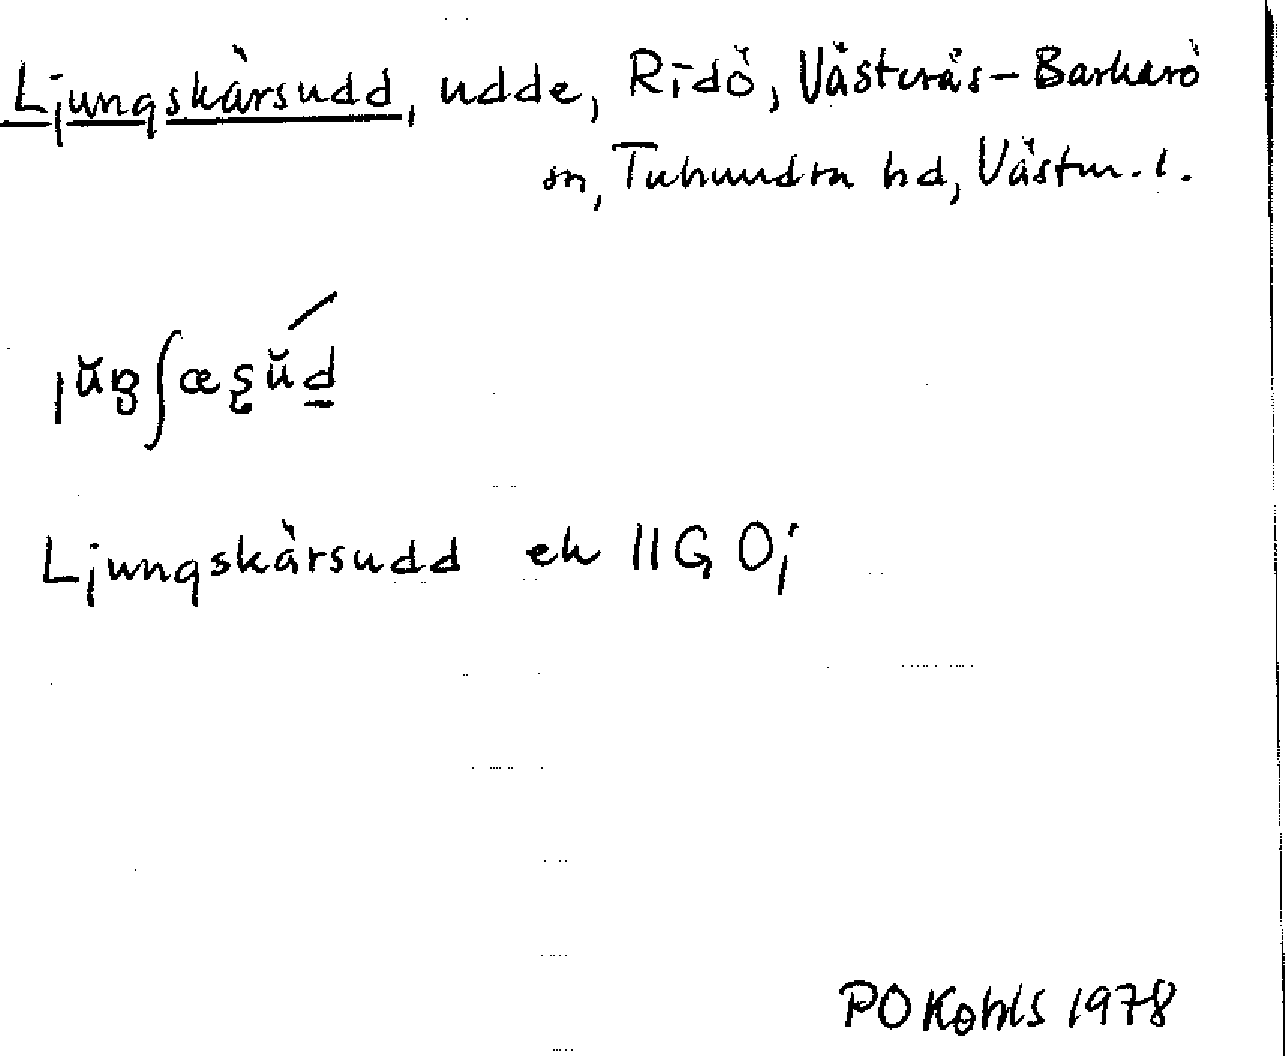 Ljungskärsudd, udde, Ridö, Västerås-Barkarö
sn, Tuhundra hd, Västm. l.
Ljungskärsudd ek 11G 0j
PO Kohls 1978